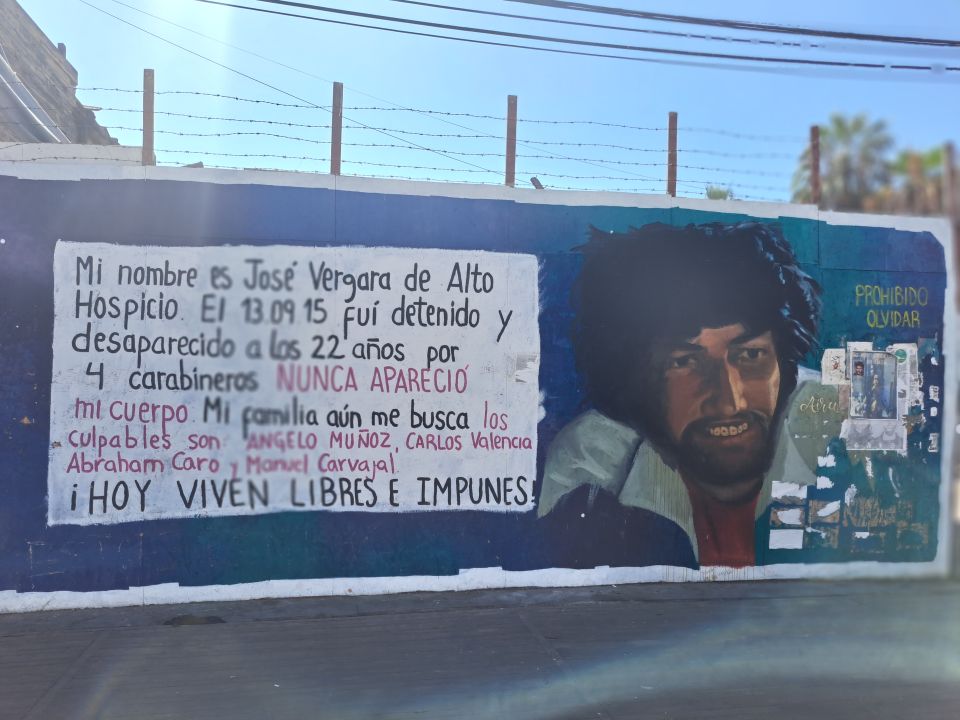 Mi nombre es José Vergara de Alto
Hospicio. El 13.09.15 fuí detenido y
desaparecido a los 22 años por
4 carabineros NUNCA APARECIÓ
mi cuerpo. Mi familia aún me busca los
culpables son ANGELO MUÑOZ, CARLOS Valencia
Abraham Caro y Manuel Carvajal.
¡HOY VIVEN LIBRES E IMPUNES!
PROHIBIDO
OLVIDAR